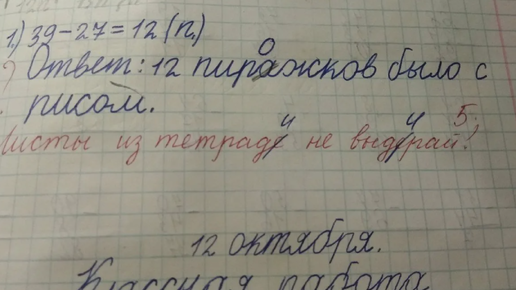 1.) 39-27=12 (п.)
Ответ: 12 пирожков было с
рисом.
Листы из тетради не выдирай! 5;
12 октября.
Классная работа